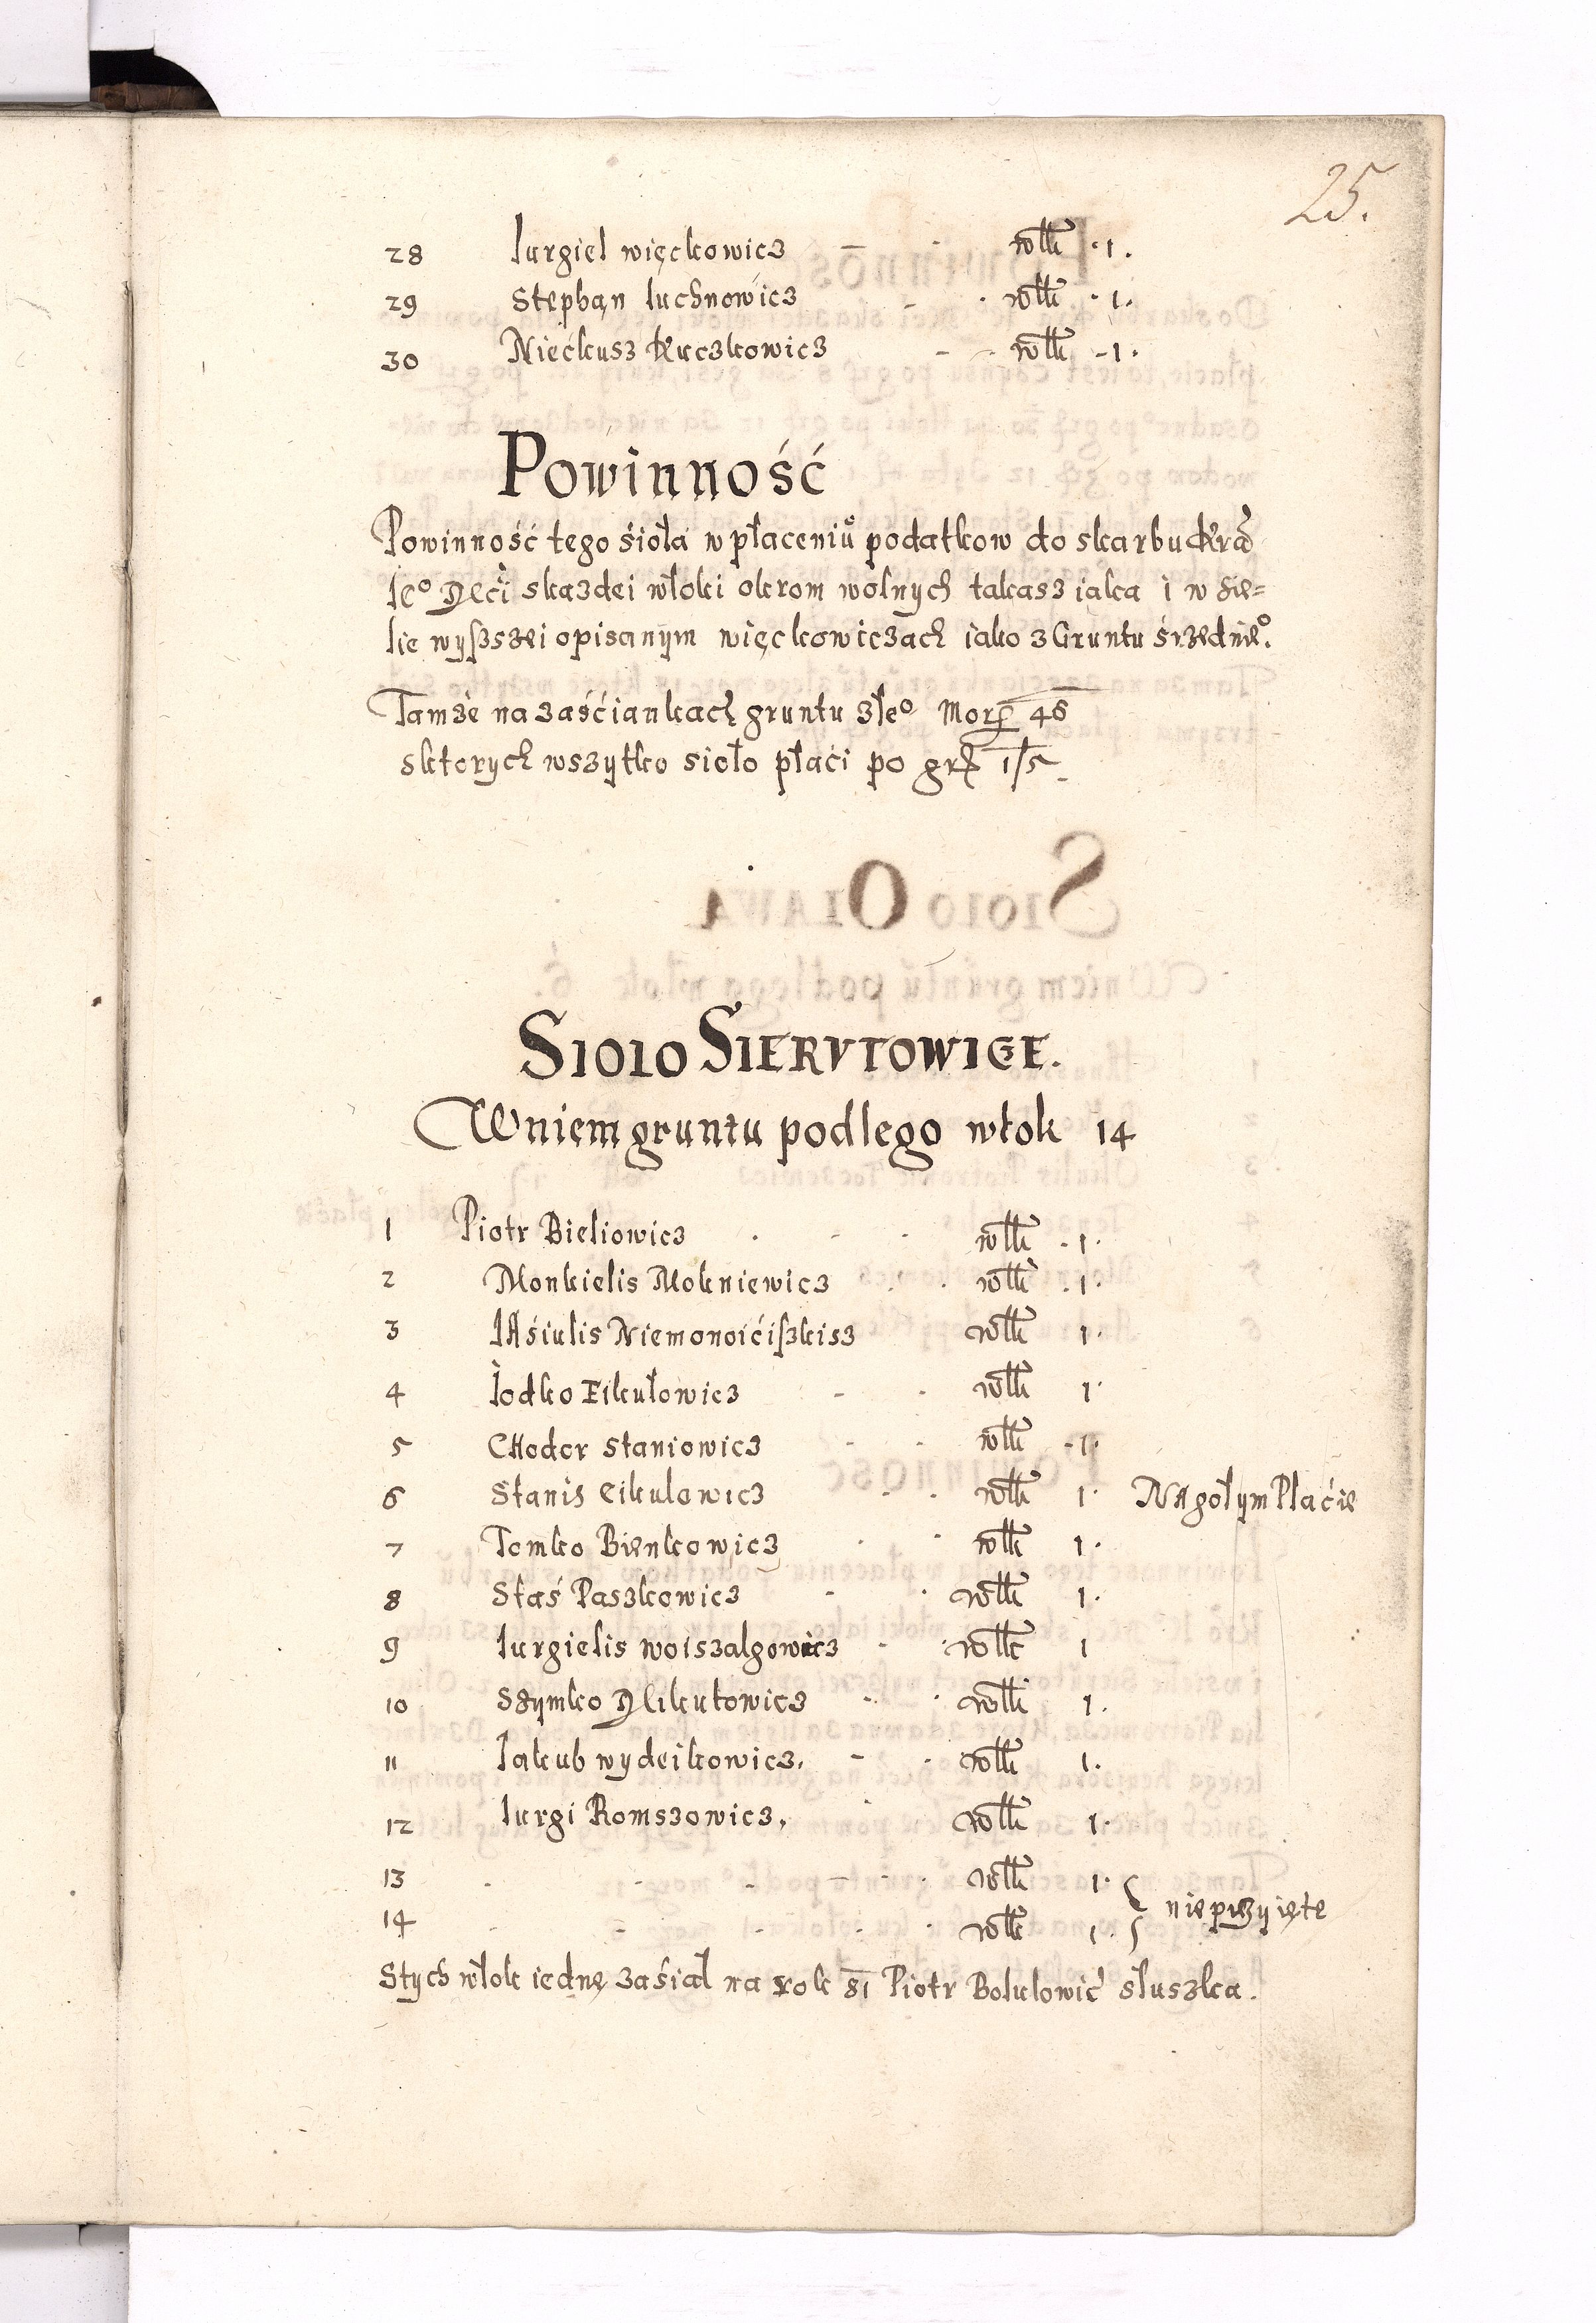 25.
28 Iurgiel więckowicz - włk 1.
29 Stephan Iuchnowicz - włk 1.
30 Nieckusz Kuczkowicz - włk 1.
Powinność
Powinność tego sioła w płaceniu podatkow do skarbu Kra
Ie° Mci skazdei włoki okrom wolnych takasz iaka i w sie=
lie wyszszei opisanym więckowiczach iako z Gruntu srzednie°.
Tamże na zaściankach gruntu złe° Morg 46
sktorych wszytko sioło płaci po gr 1/5
SIOIO SIERVTOWICE.
W niem gruntu podlego włok 14
1 Piotr Bieliowicz - włk 1.
2 Monkielis Mokniewicz włk 1.
3 IAsiulis Niemonoiciszkisz włk 1.
4 Iodko Eikułowicz - włk 1.
5 CHodor Staniowicz - włk 1.
6 Stanis Eikulowicz - włk 1. NA gołym Płacie
7 Tomko Bienkowicz włk 1.
8 Staś Paszkowicz - włk 1.
9 Iurgielis woiszalgowicz - włk 1
10 Szymko Mikutowicz - włk 1.
11 Iakub wydeikowicz. - włk 1.
12 Iurgi Romszowicz. włk 1.
13 - włk 1.
14 - włk 1. } nieprzyięte
Stych włok iednę zasiał na rok 81 Piotr Bolulowic słuszka.